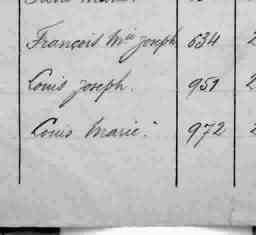 François Mie joseph 634 2
Louis joseph. 951 2
Louis Marie. 972 2